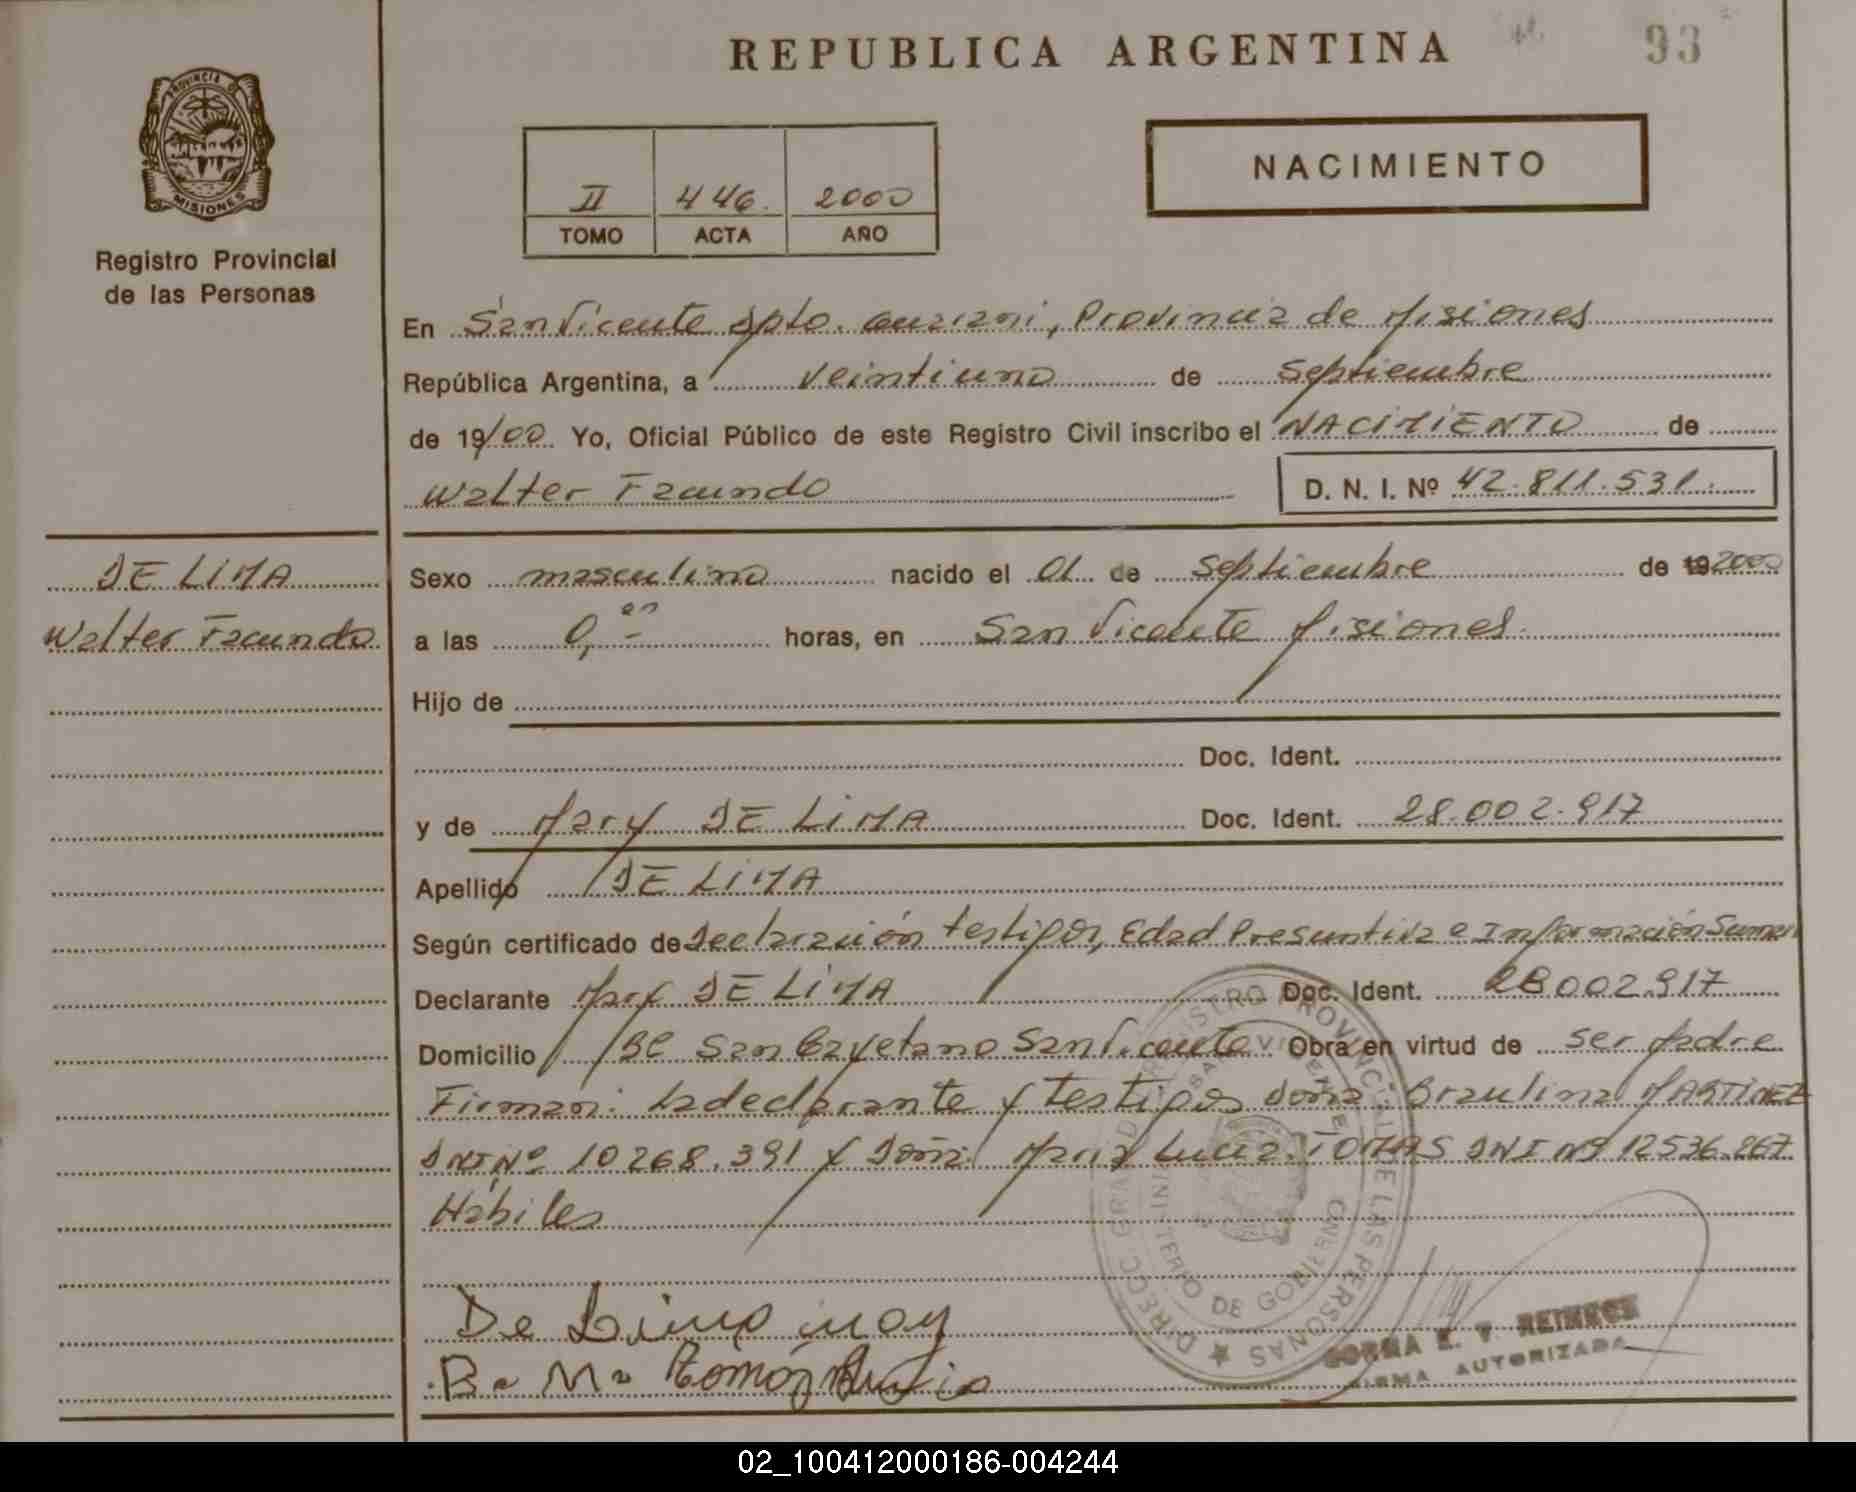 REPUBLICA ARGENTINA
93
PROVINCIA DE
MISIONES
Registro Provincial
de las Personas
II 446. 2000
TOMO ACTA AÑO
NACIMIENTO
En San Vicente Dpto. Guaraní, Provincia de Misiones
República Argentina, a veintiuno de septiembre
de 19/00 Yo, Oficial Público de este Registro Civil inscribo el NACIMIENTO de
Walter Facundo D. N. I. Nº 42.811.531.
DE LIMA
Walter Facundo
Sexo masculino nacido el 01 de septiembre de 19 2000
a las 0, horas, en San Vicente Misiones.
Hijo de
Doc. Ident.
y de Mary DE LIMA Doc. Ident. 28.002.917
Apellido DE LIMA
Según certificado de Declaración testigos, Edad Presuntiva e Información Sumari
Declarante Mary DE LIMA Doc. Ident. 28002.917
Domicilio Bº San Cayetano San Vicente Obra en virtud de ser Madre
Firman: La declarante y testigos doña: Braulina MARTINEZ
DNI Nº 10268.391 y Doña: Maria Lucia TOMAS DNI Nº 12536.267
Hábiles
De Lima
B. Ma
DIRECC. GRAL. DE REGISTRO PROVINCIAL DE LAS PERSONAS
MINISTERIO DE GOBIERNO
SAN VICENTE
E. REINECK
FIRMA AUTORIZADA
02_100412000186-004244